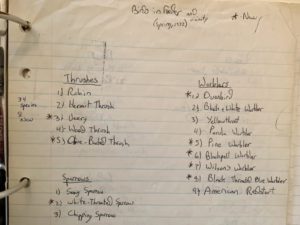 Birds in Feeder and vicinity
(Spring, 1977)
* New
Thrushes
1) Robin
2) Hermit Thrush
*3) Veery
4) Wood Thrush
*5) Olive-Backed Thrush
34
species
8
new
Sparrows
1) Song Sparrow
*2) White-Throated Sparrow
3) Chipping Sparrow
Warblers
*1) Ovenbird
2) Black & White Warbler
3) Yellowthroat
4) Parula Warbler
*5) Pine Warbler
*6) Blackpoll Warbler
*7) Wilson's Warbler
*8) Black Throated Blue Warbler
9) American Redstart